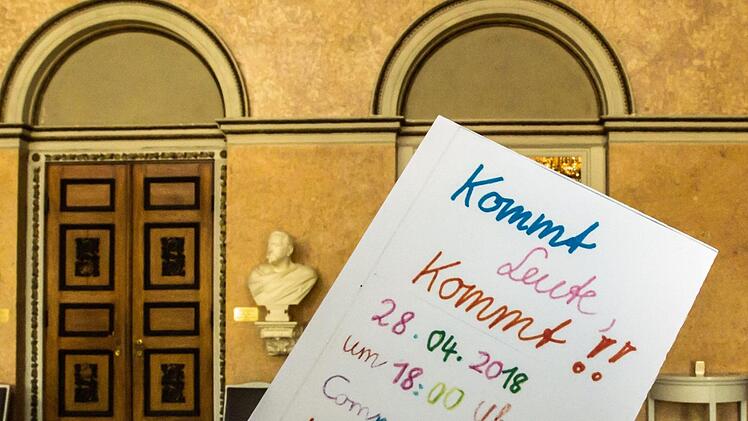 Kommt
Leute,
Kommt!!
28.04.2018
um 18:00